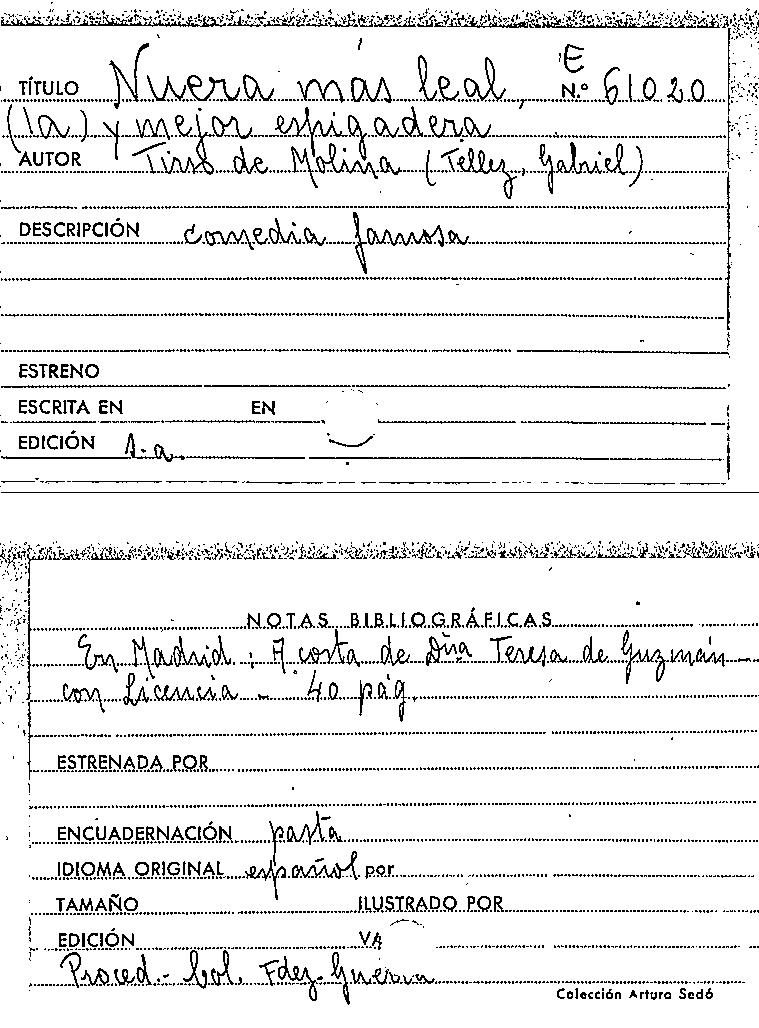 E
TÍTULO Nuera más leal, N.º 61020
(la) y mejor espigadera
AUTOR Tirso de Molina (Téllez, Gabriel)
DESCRIPCIÓN comedia famosa
ESTRENO
ESCRITA EN EN
EDICIÓN s.a.
NOTAS BIBLIOGRÁFICAS
En Madrid: A costa de Dña Teresa de Guzmán -
con Licencia - 40 pág.
ESTRENADA POR
ENCUADERNACIÓN pasta
IDIOMA ORIGINAL español por
TAMAÑO ILUSTRADO POR
EDICIÓN VA
Proced.- Col. Fdez-Guerra
Colección Arturo Sedó